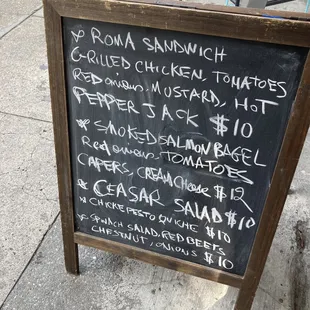 * ROMA SANDWICH
GRILLED CHICKEN, TOMATOES
RED onions, MUSTARD, HOT
PEPPER JACK $10
* SMOKED SALMON BAGEL
Red onions TOMATOES
CAPERS, CREAM cheese $12
* CEASAR SALAD $10
* CHICKE PESTO QUICHE $10
* SPINACH SALAD, RED BEETS
CHESTNUT, ONIONS $10